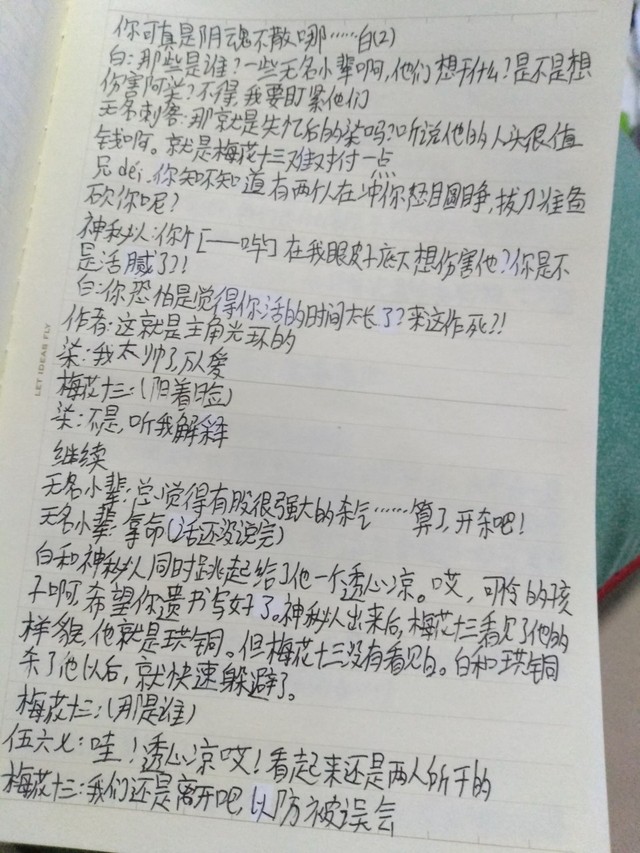 你可真是阴魂不散哪……白(2)
白:那些是谁?一些无名小辈啊,他们想干什么?是不是想
伤害阿柒?不得,我要盯紧他们
无名刺客:那就是失忆后的柒吗?听说他的人头很值
钱啊。就是梅花十三难对付一点
兄déi,你知不知道有两个人在冲你怒目圆睁,拔刀准备
砍你呢?
神秘人:你个[——哔]在我眼皮子底下想伤害他?你是不
是活腻了?!
白:你恐怕是觉得你活的时间太长了?来这作死?!
作者:这就是主角光环的
柒:我太帅了,万人爱
梅花十三:(阴着脸)
柒:不是,听我解释
继续
无名小辈:总觉得有股很强大的杀气……算了,开杀吧!
无名小辈:拿命(话还没说完)
白和神秘人同时跳起给了他一个透心凉。哎,可怜的孩
子啊,希望你遗书写好了。神秘人出来后,梅花十三看见了他的
样貌,他就是珙铜。但梅花十三没有看见白。白和珙铜
杀了他以后,就快速躲避了。
梅花十三:(那是谁)
伍六七:哇!透心凉哎!看起来还是两人所干的
梅花十三:我们还是离开吧,以防被误会
LET IDEAS FLY